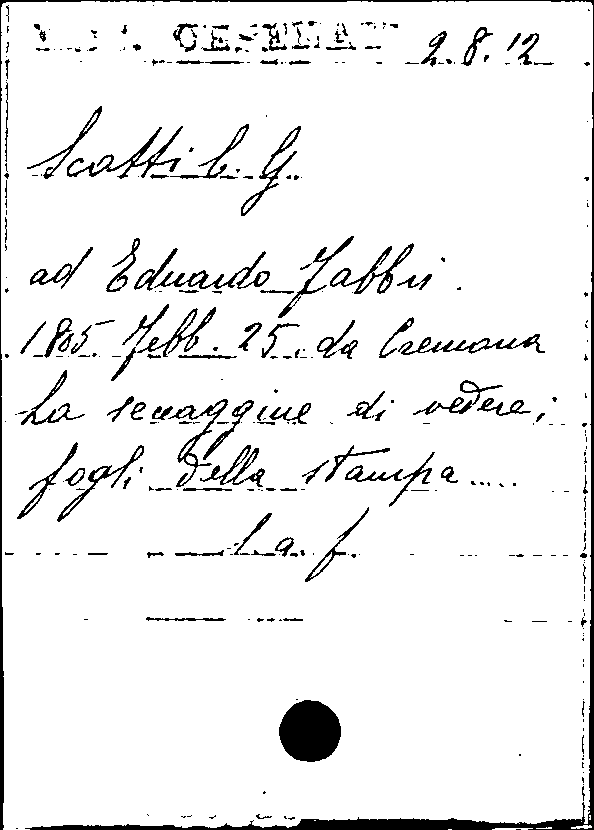 CESENAT 2.8.12
Scotti C. G.
ad Eduardo Fabbri.
1805. Febb. 25. da Cremona
La seccaggine di vedere i
fogli della stampa.....
l. a. f.